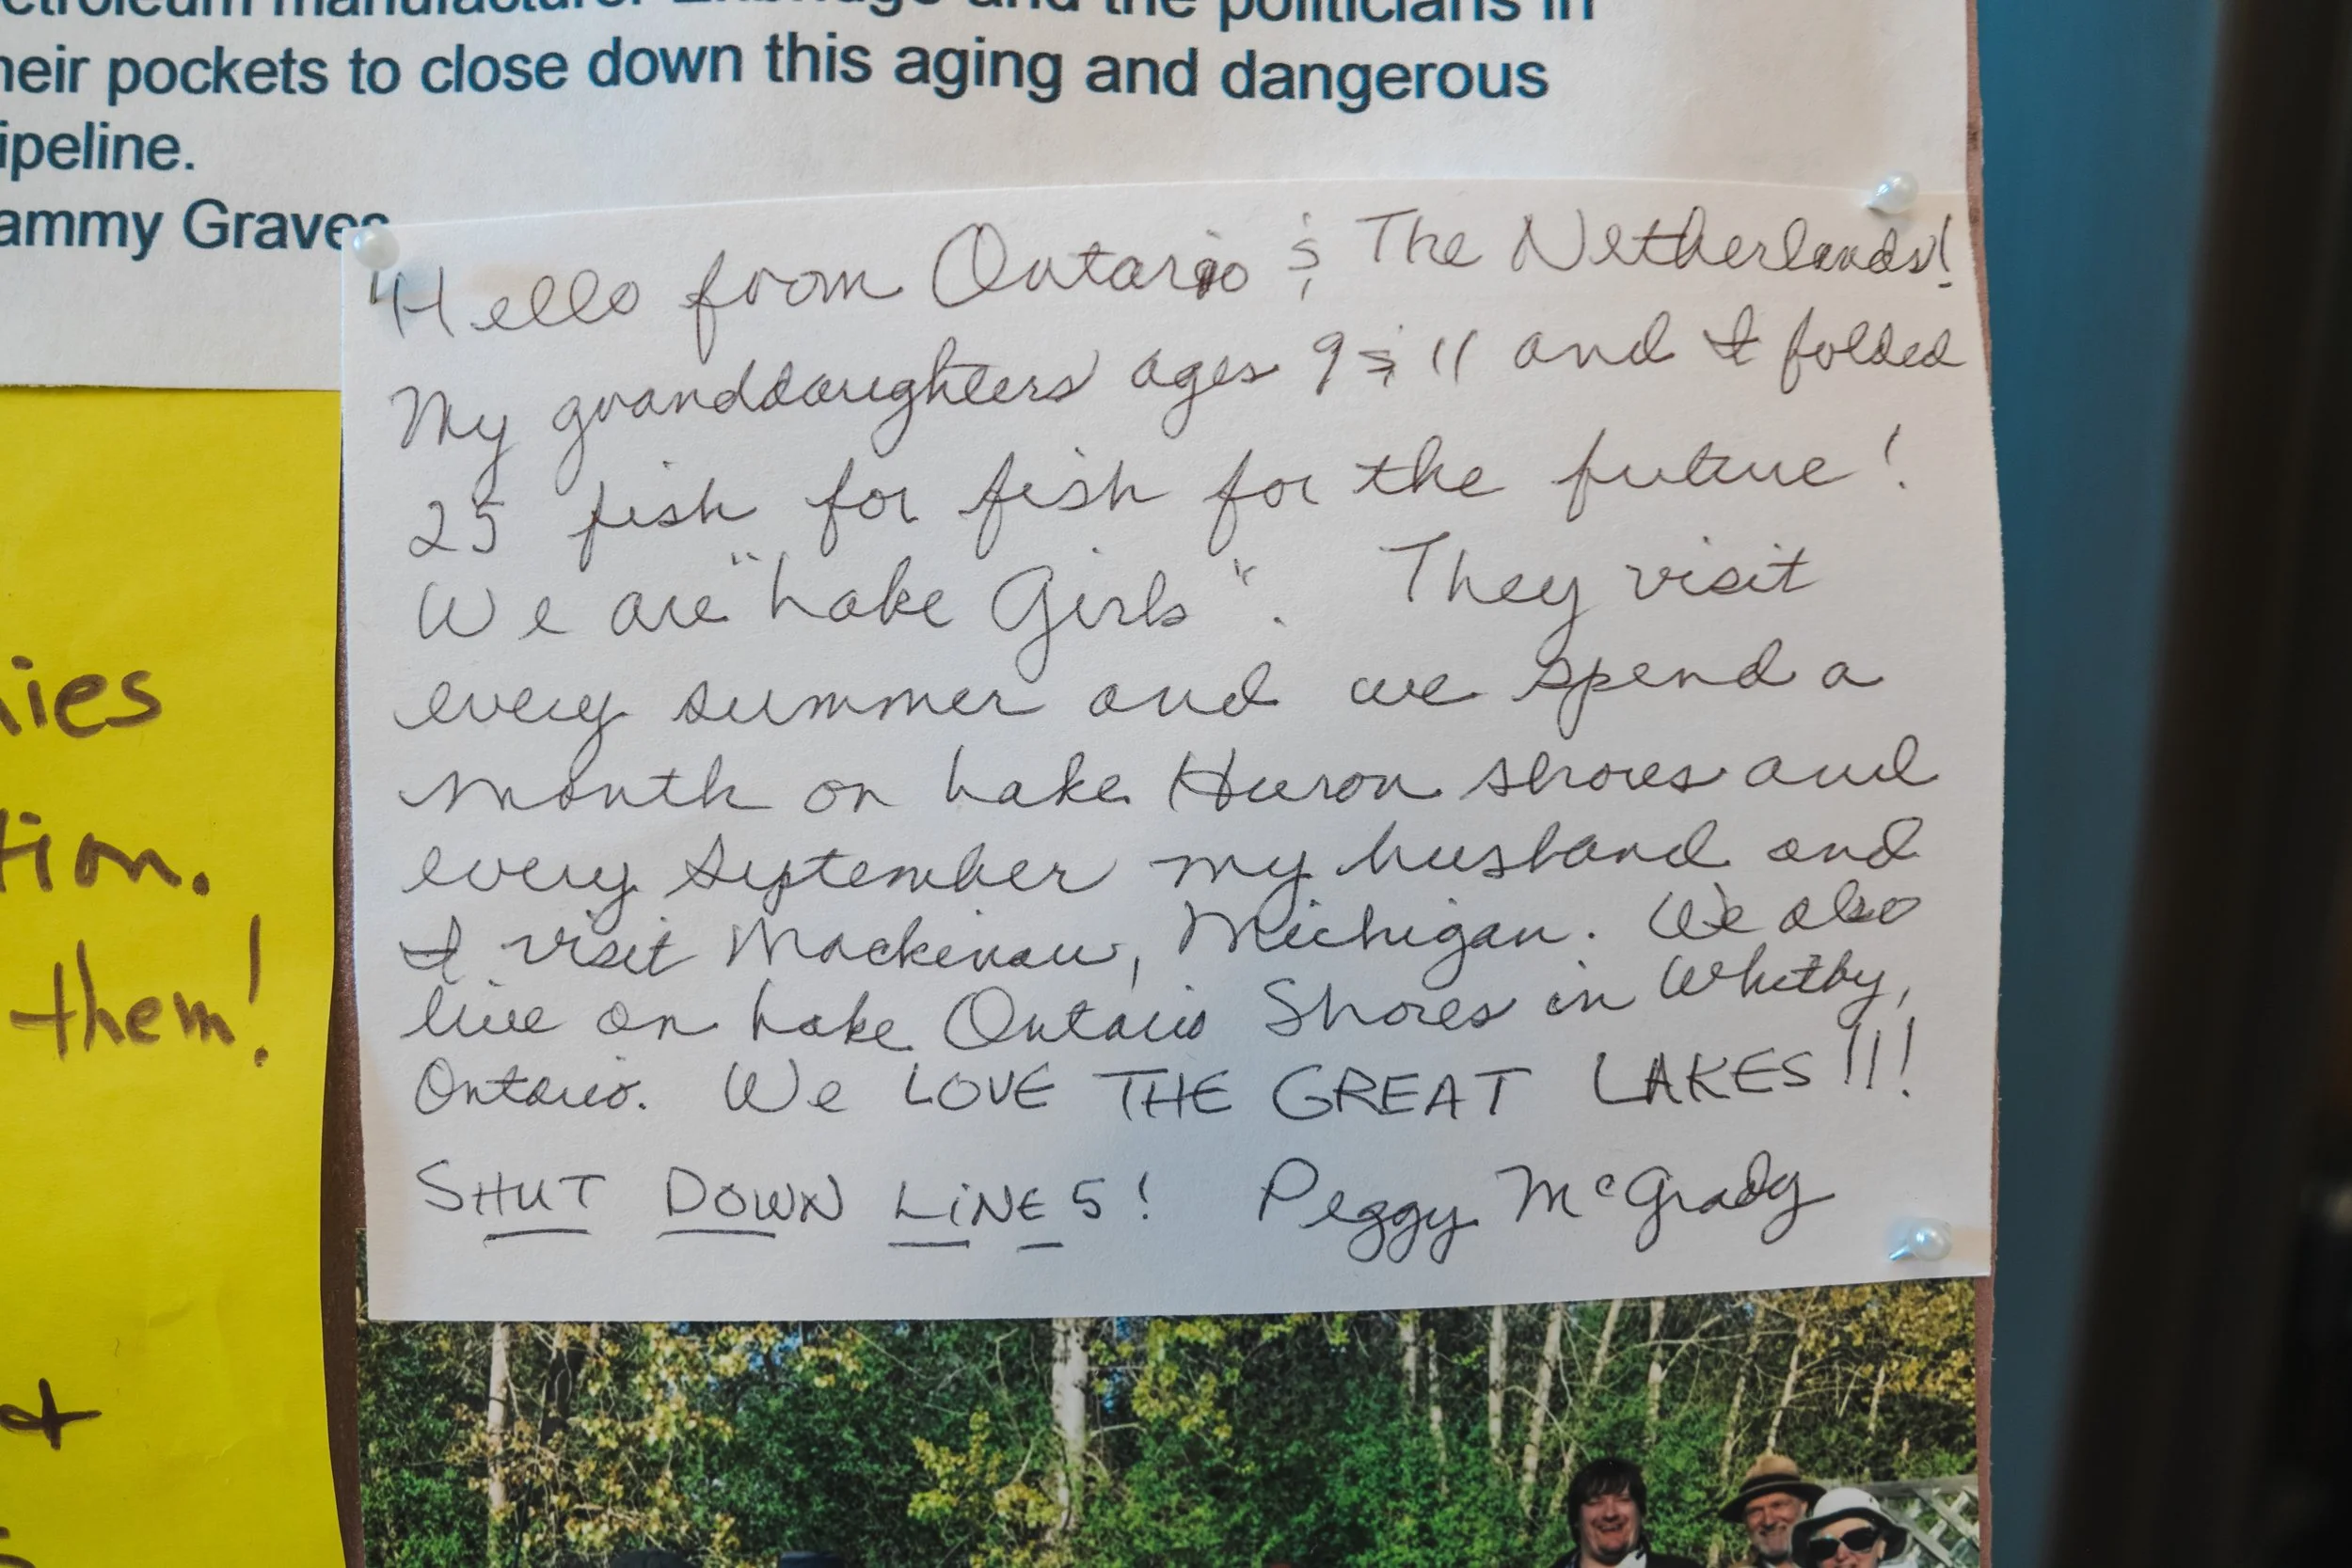 petroleum manufacturer Enbridge and the politicians in
heir pockets to close down this aging and dangerous
ipeline.
ammy Graves
"Hello from Ontario & The Netherlands!
My granddaughters ages 9 & 11 and I folded
25 fish for fish for the future!
We are "Lake Girls". They visit
every summer and we spend a
month on Lake Huron shores and
every September my husband and
I visit Mackinaw, Michigan. We also
live on Lake Ontario Shores in Whitby,
Ontario. We LOVE THE GREAT LAKES!!!
SHUT DOWN LiNE 5! Peggy McGrady
ies
tion.
them!